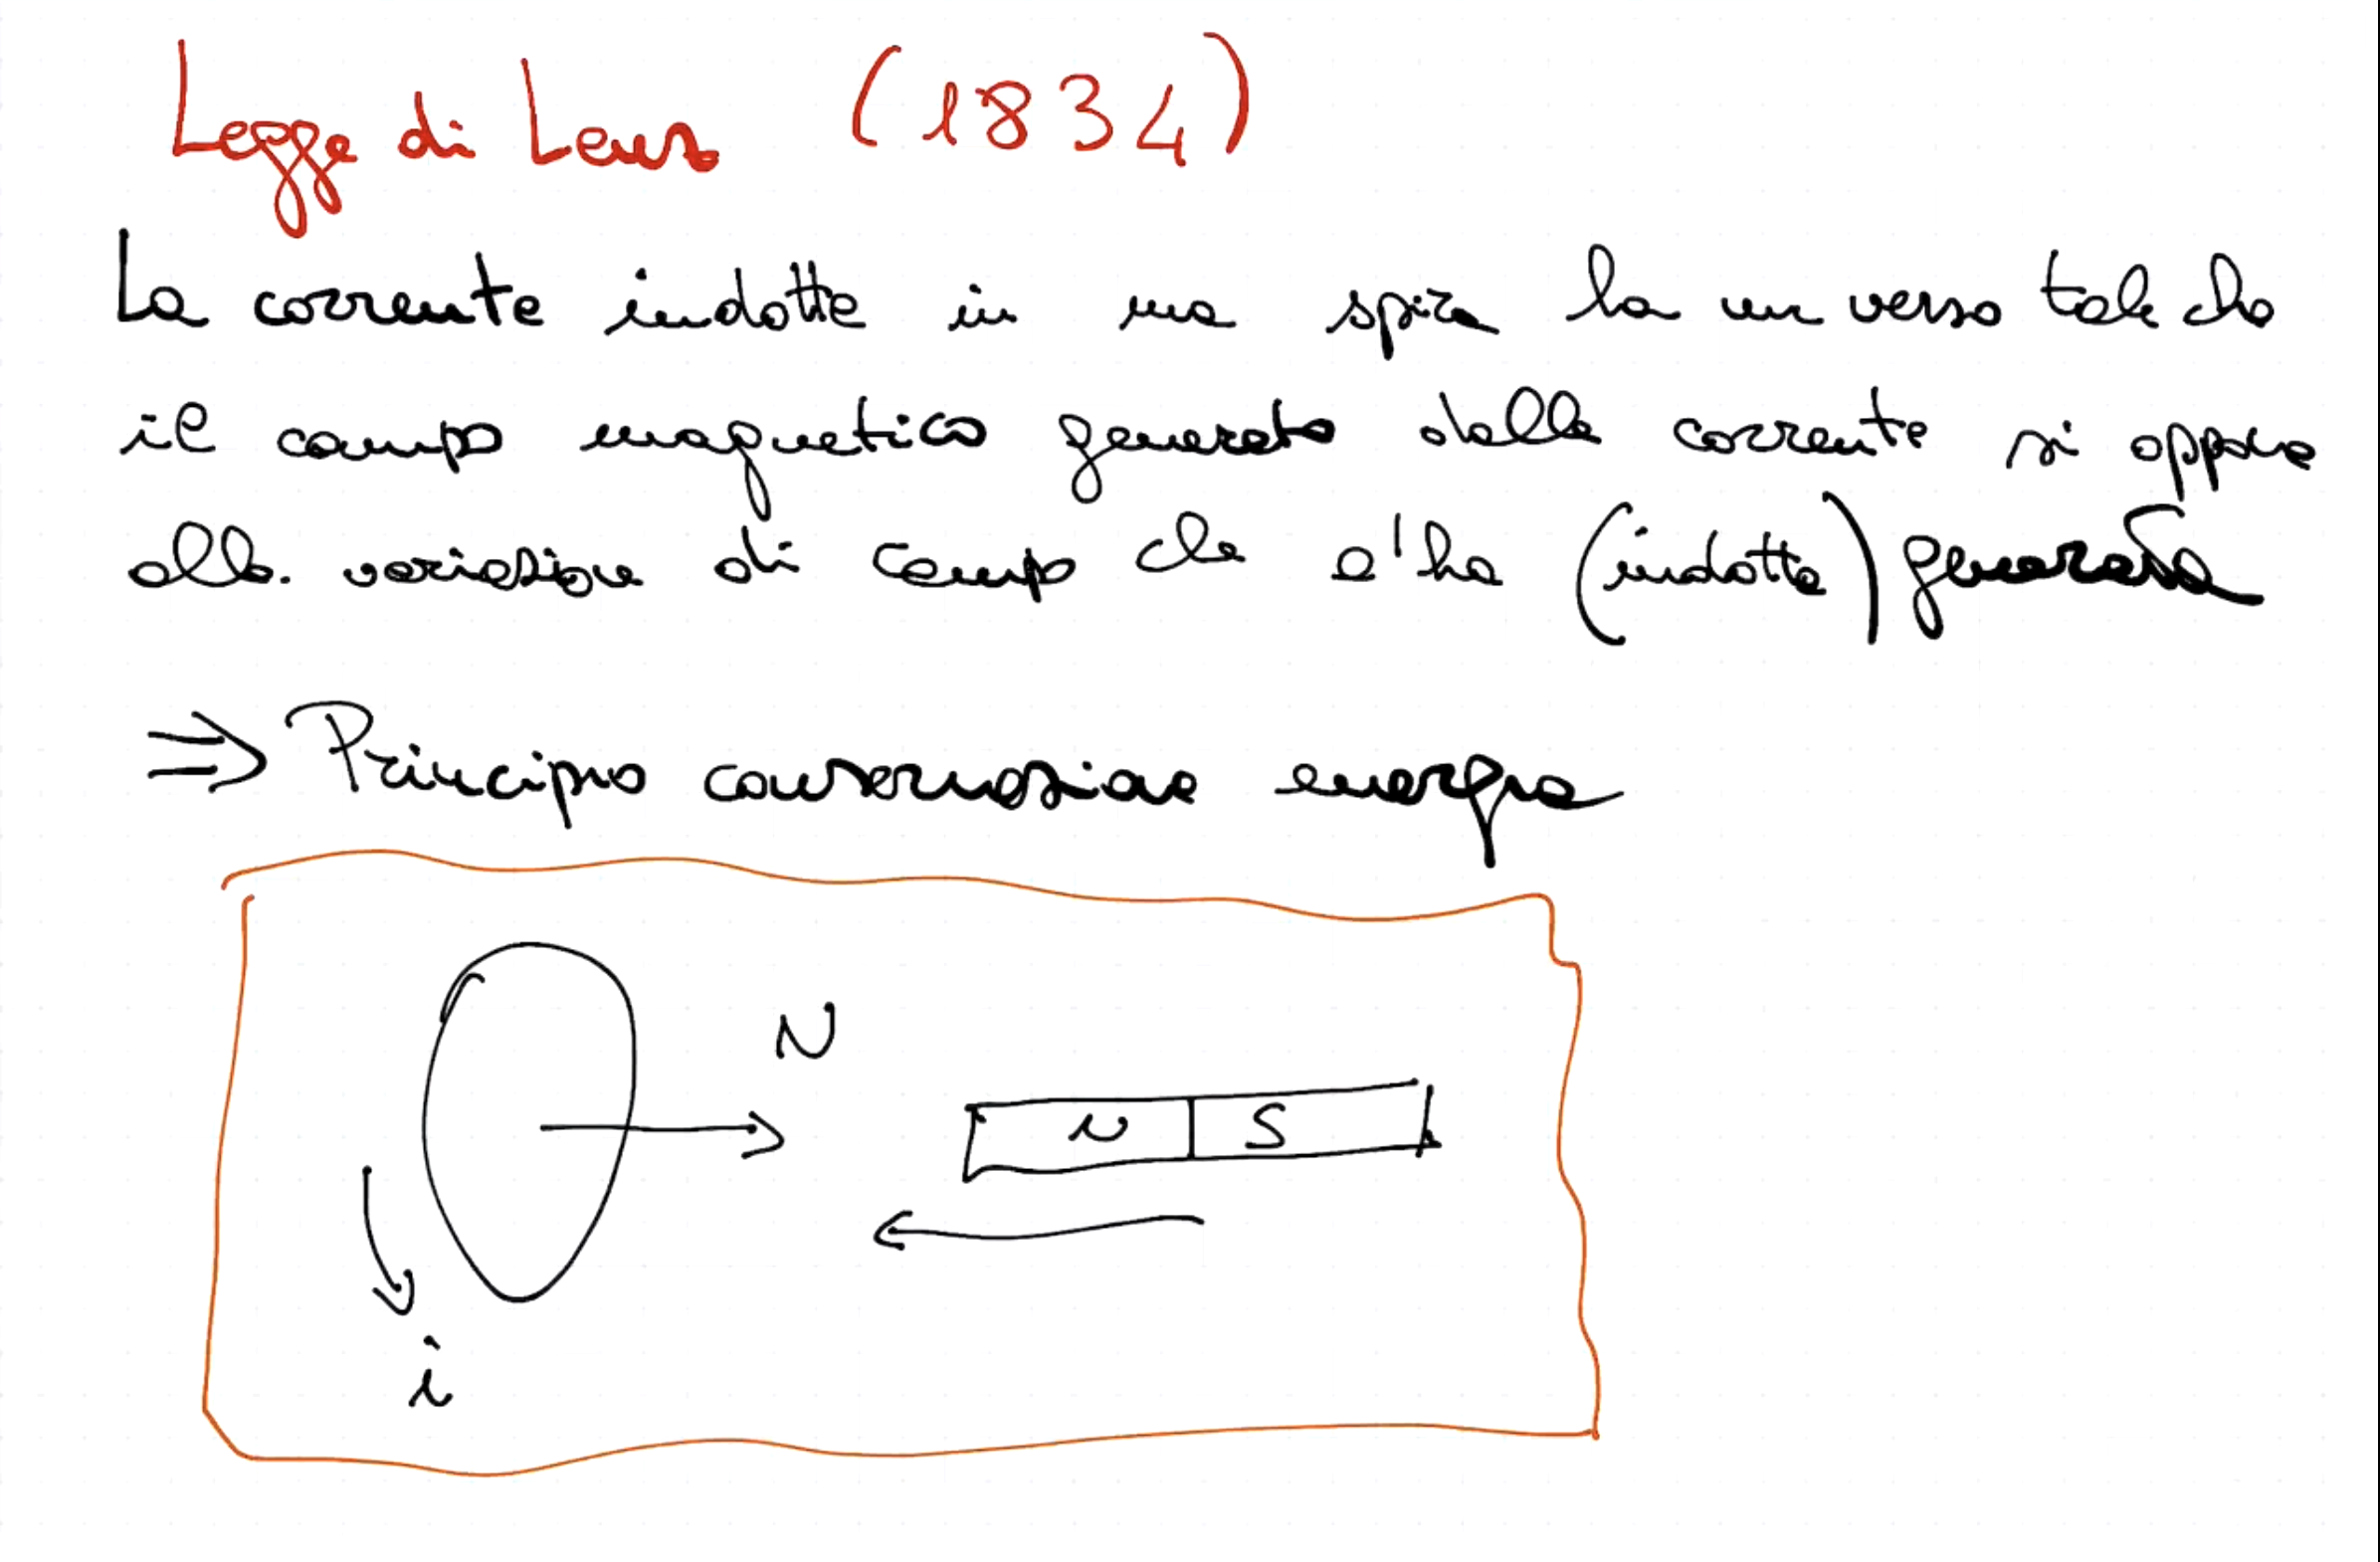 Legge di Lenz (1834)
La corrente indotta in una spira ha un verso tale che
il campo magnetico generato dalla corrente si oppone
alla variazione di campo che l'ha (indotta) generata
⇒ Principio conservazione energia
N
N S
i